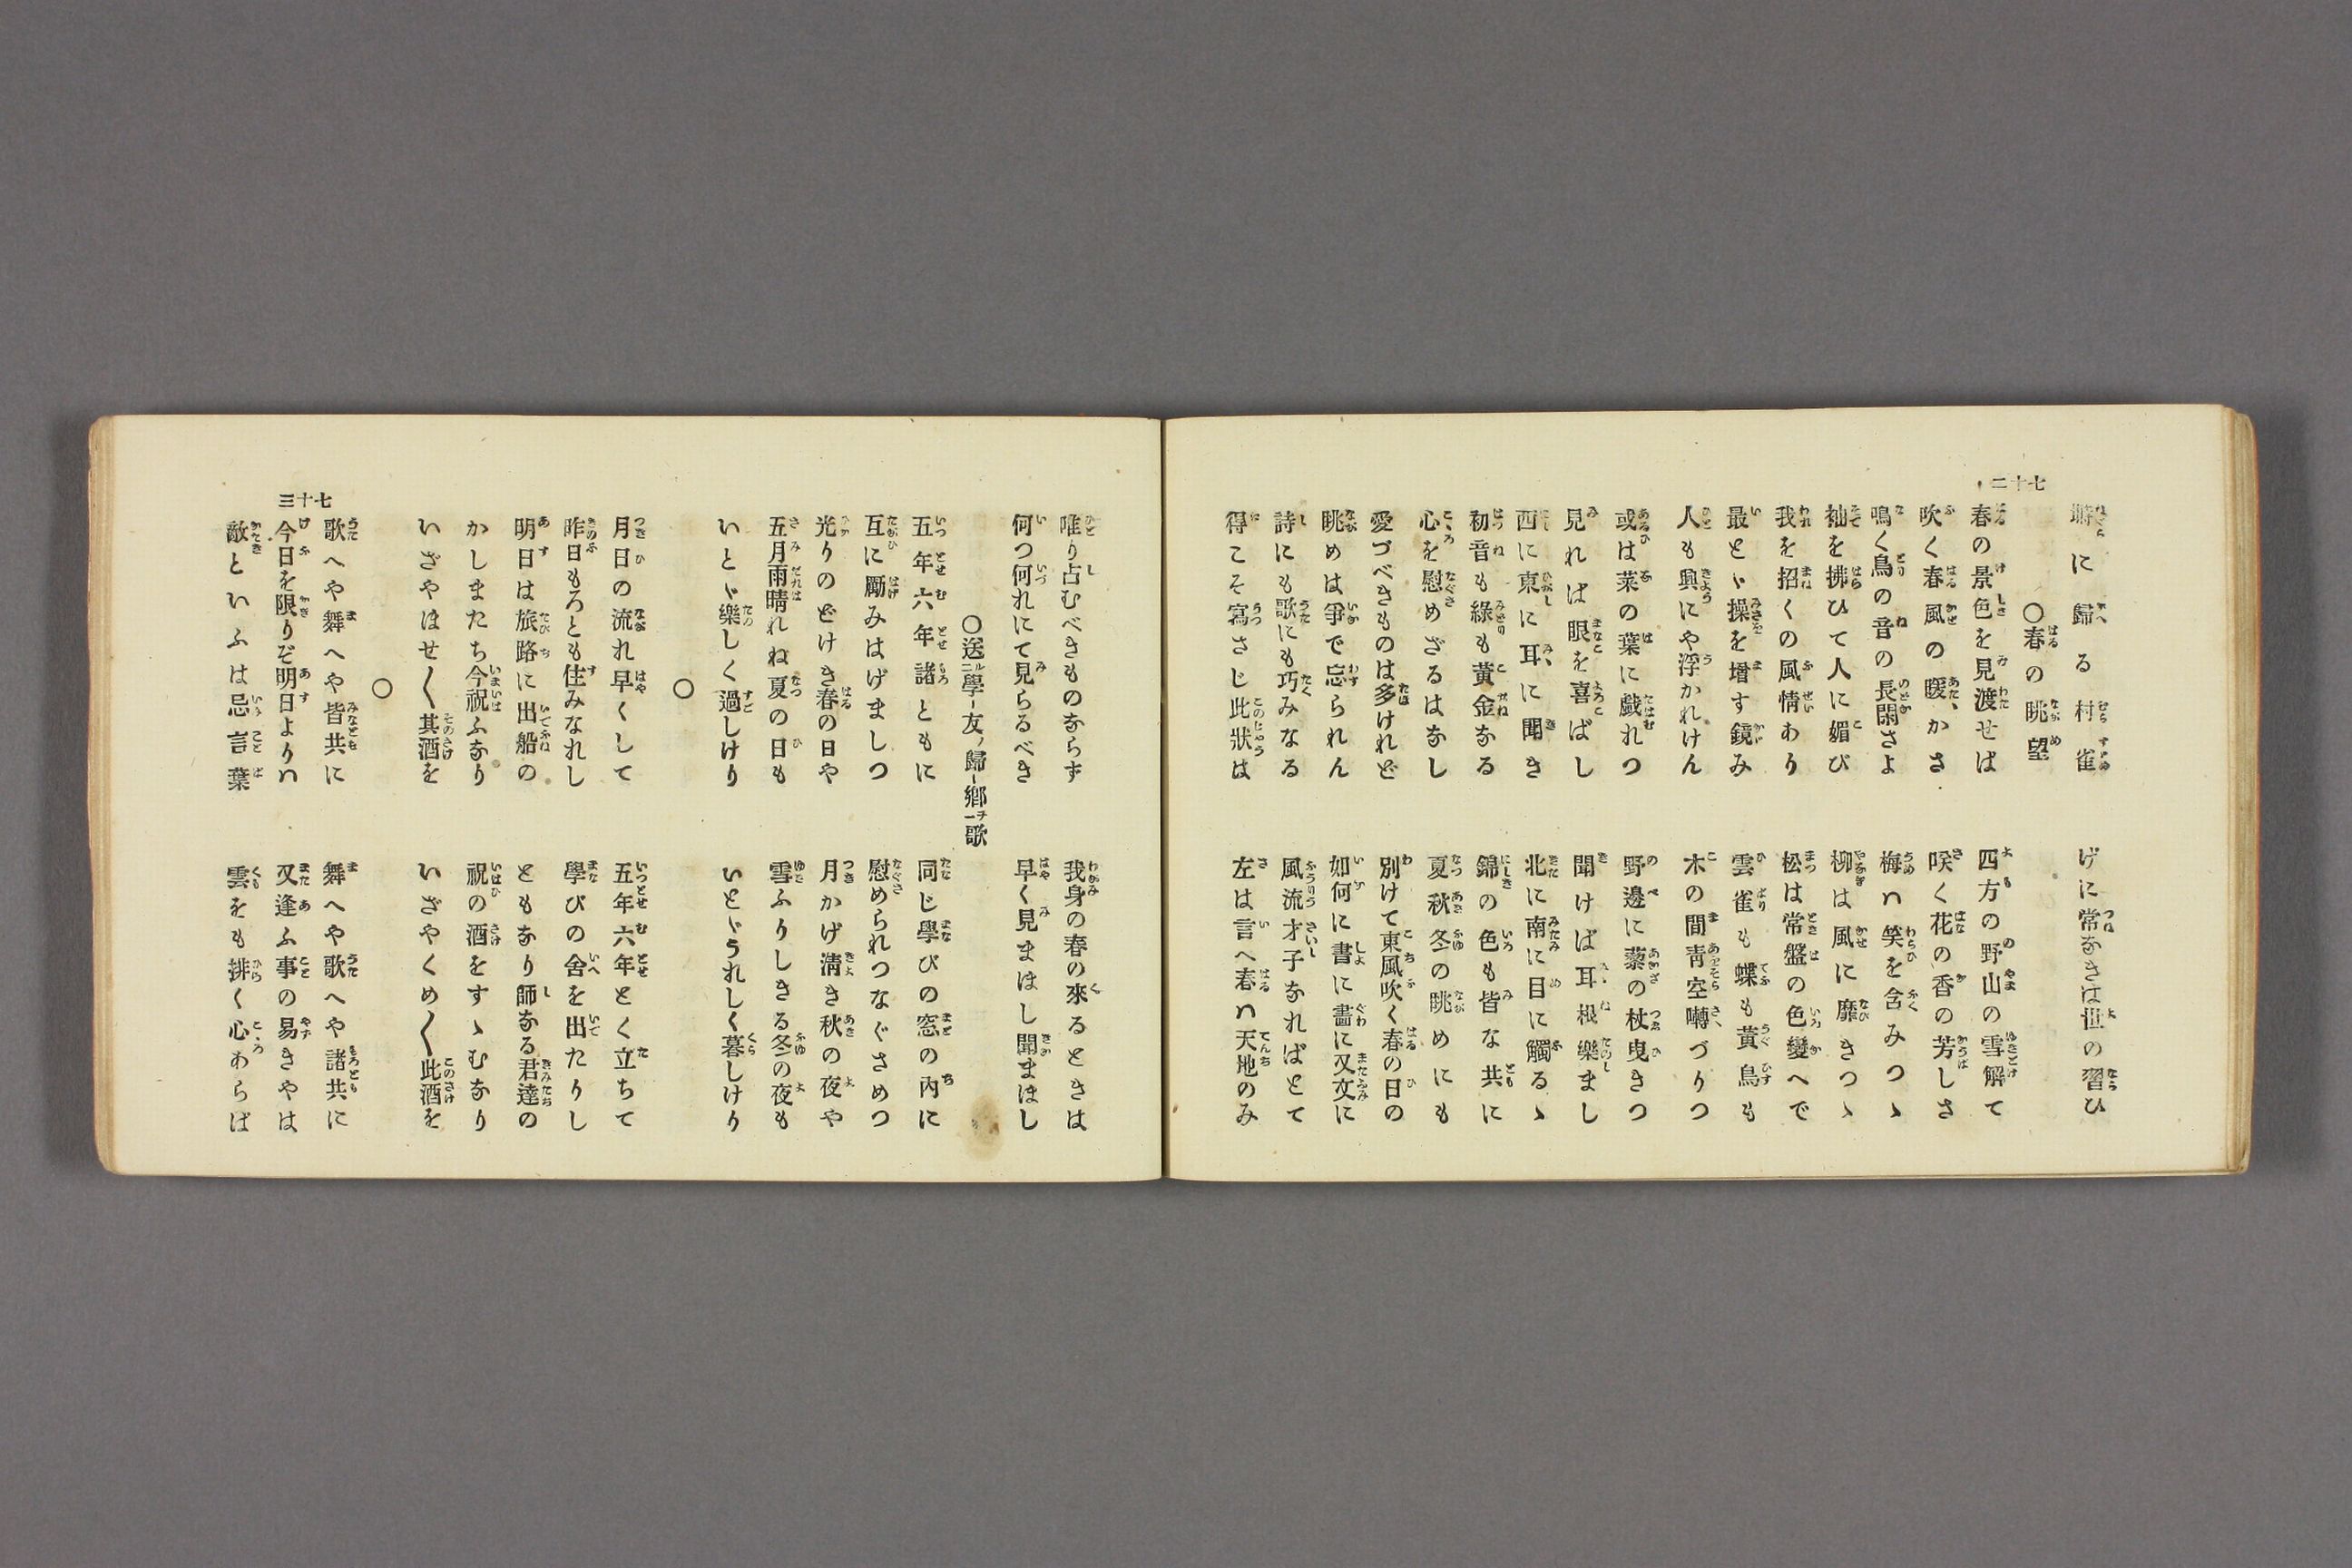 七十二
塒に歸る村雀　げに常なきは世の習ひ
〇春の眺望
春の景色を見渡せば　四方の野山の雪解て
吹く春風の暖かさ　咲く花の香の芳しさ
鳴く鳥の音の長閑さよ　梅ハ笑を含みつゝ
袖を拂ひて人に媚び　柳は風に靡きつゝ
我を招くの風情あり　松は常盤の色變へで
最とゞ操を增す鏡み　雲雀も蝶も黃鳥も
人も興にや浮かれけん　木の間靑空囀づりつ
或は菜の葉に戲れつ　野邊に藜の杖曳きつ
見れば眼を喜ばし　聞けば耳根樂まし
西に東に耳に聞き　北に南に目に觸るゝ
初音も綠も黃金なる　錦の色も皆な共に
心を慰めざるはなし　夏秋冬の眺めにも
愛づべきものは多けれど　別けて東風吹く春の日の
眺めは爭で忘られん　如何に書に畫に又文に
詩にも歌にも巧みなる　風流才子なればとて
得こそ寫さじ此狀は　左は言へ春ハ天地のみ
唯り占むべきものならず　我身の春の來るときは
何つ何れにて見らるべき　早く見まほし聞まほし
〇送ル二學ー友ノ歸ー鄕ヲ一歌
五年六年諸ともに　同じ學びの窓の內に
互に勵みはげましつ　慰められつなぐさめつ
光りのどけき春の日や　月かげ淸き秋の夜や
五月雨晴れね夏の日も　雪ふりしきる冬の夜も
いとゞ樂しく過しけり　いとゞうれしく暮しけり
〇
月日の流れ早くして　五年六年とく立ちて
昨日もろとも住みなれし　學びの舍を出たりし
明日は旅路に出船の　ともなり師なる君達の
かしまたち今祝ふなり　祝の酒をすゝむなり
いざやほせ〱其酒を　いざやくめ〱此酒を
〇
七十三
歌へや舞へや皆共に　舞へや歌へや諸共に
今日を限りぞ明日よりハ　又逢ふ事の易きやは
敵といふは忌言葉　雲をも排く心あらば